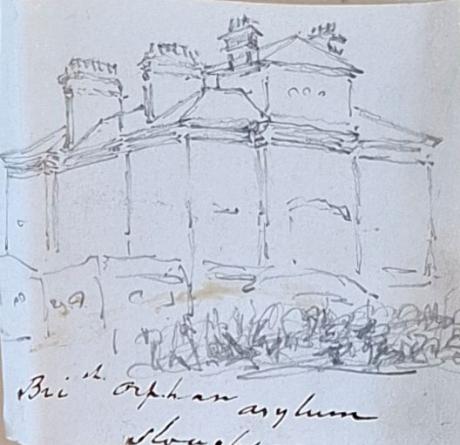 Bri^sh orphan asylum
Slough